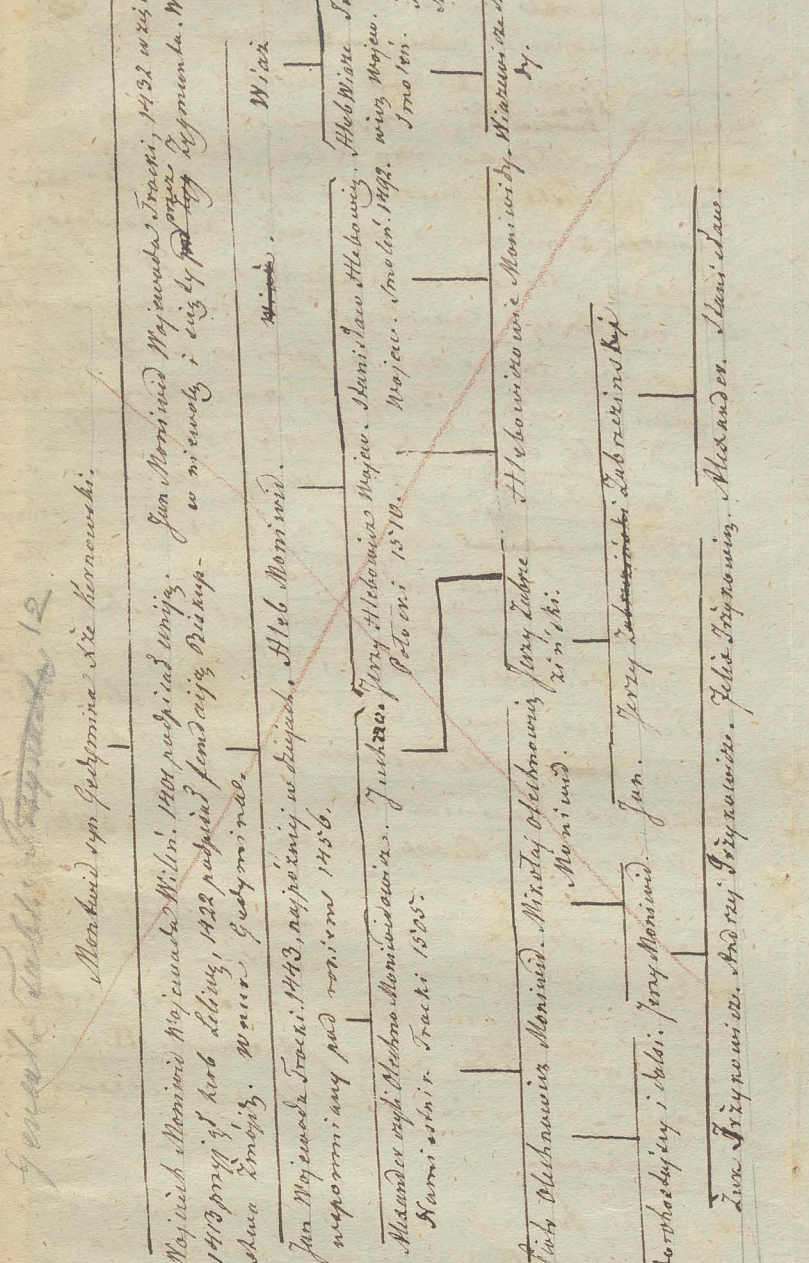 Montwid syn Gedymina Xże Kiernowski.
Wojciech Moniwid Wojewoda Wileń. 1401 podpisał uniję.
1413 przyjął herb Leliwę, 1422 podpisał fundaciję Biskup-
stwa Żmójdz. Wnuk Gedymina.
Jan Moniwid Wojewoda Trocki, 1432 wzię
w niewolę i ścięty przez Zygmunta. W
Jan Wojewoda Trocki. 1443, najpóźniej w dziejach
wspomniany pod rokiem 1456.
Hleb Moniwid.
Wiaż
Alexander czyli Olechno Moniwidowicz.
Namiestnik Trocki 1505.
Juchno.
Jerzy Hlebowicz Wojew.
Połocki 1510.
Stanisław Hlebowicz.
Wojew. Smoleń. 1492.
Hleb Wiaże
wicz Wojew.
Smoleń.
Piotr Olechnowicz Moniwid.
Mikołaj Olechnowicz
Moniwid.
Jerzy Zabrze
ziński.
Hlebowiczowie Moniwidy.
Wiażewicze
dy.
Dorohostajscy i dalsi.
Jerzy Moniwid.
Jan.
Jerzy Zabrzezinski
Zuk Irżykowicz.
Andrzej Irżykowicz.
Felix Irżykowicz.
Alexander.
Stanisław.